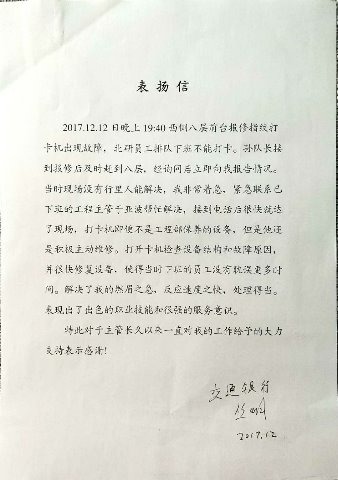 表扬信
2017.12.12日晚上19:40西侧八层前台报修指纹打
卡机出现故障，北研员工排队下班不能打卡。孙队长接
到报修后及时赶到八层，经询问后立即向我报告情况。
当时现场没有行里人能解决，我非常着急，紧急联系已
下班的工程主管于亚波帮忙解决，接到电话后很快就达
了现场，打卡机即便不是工程部保养的设备，但是他还
是积极主动维修。打开卡机检查设备结构和故障原因，
并很快修复设备，使得当时下班的员工没有耽误更多时
间。解决了我的燃眉之急，反应速度之快，处理得当。
表现出了出色的职业技能和很强的服务意识。
特此对于主管长久以来一直对我的工作给予的大力
支持表示感谢！
交通银行
2017.12